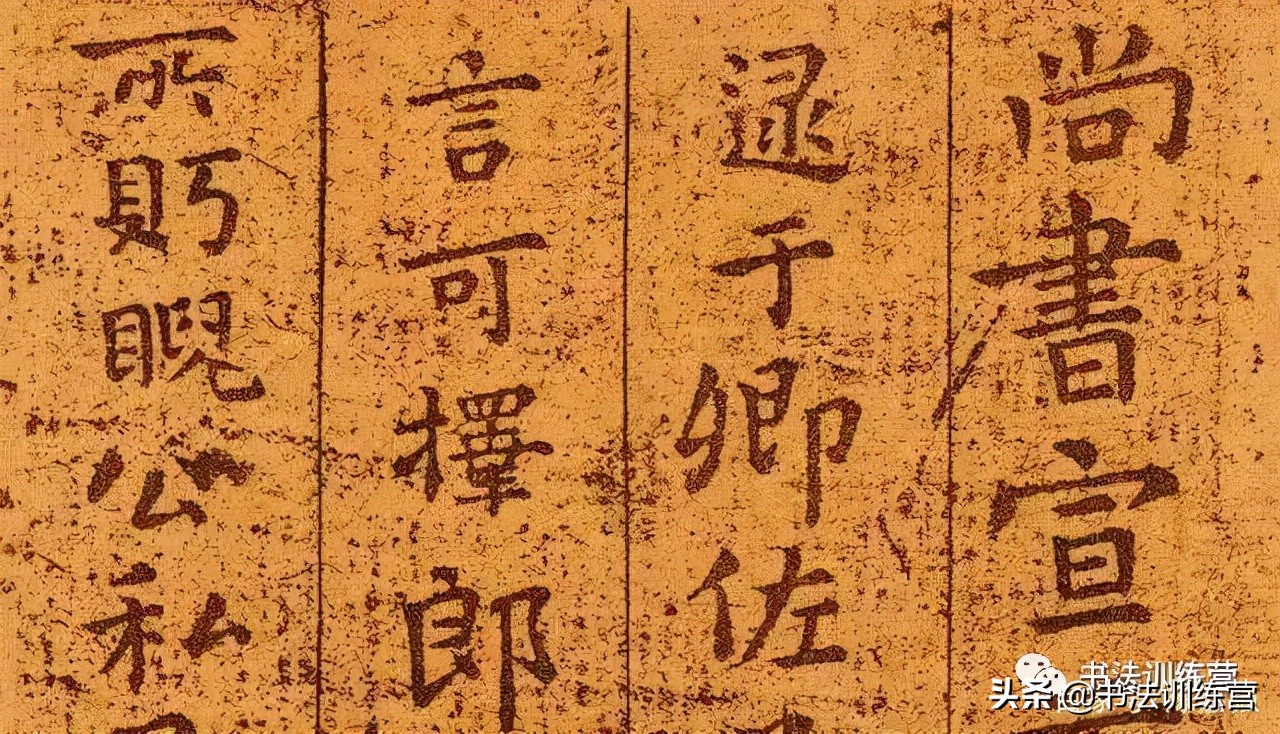 尚書宣
逮于卿佐
言可擇郎
所眄睨公私
书法训练营
头条 @书法训练营